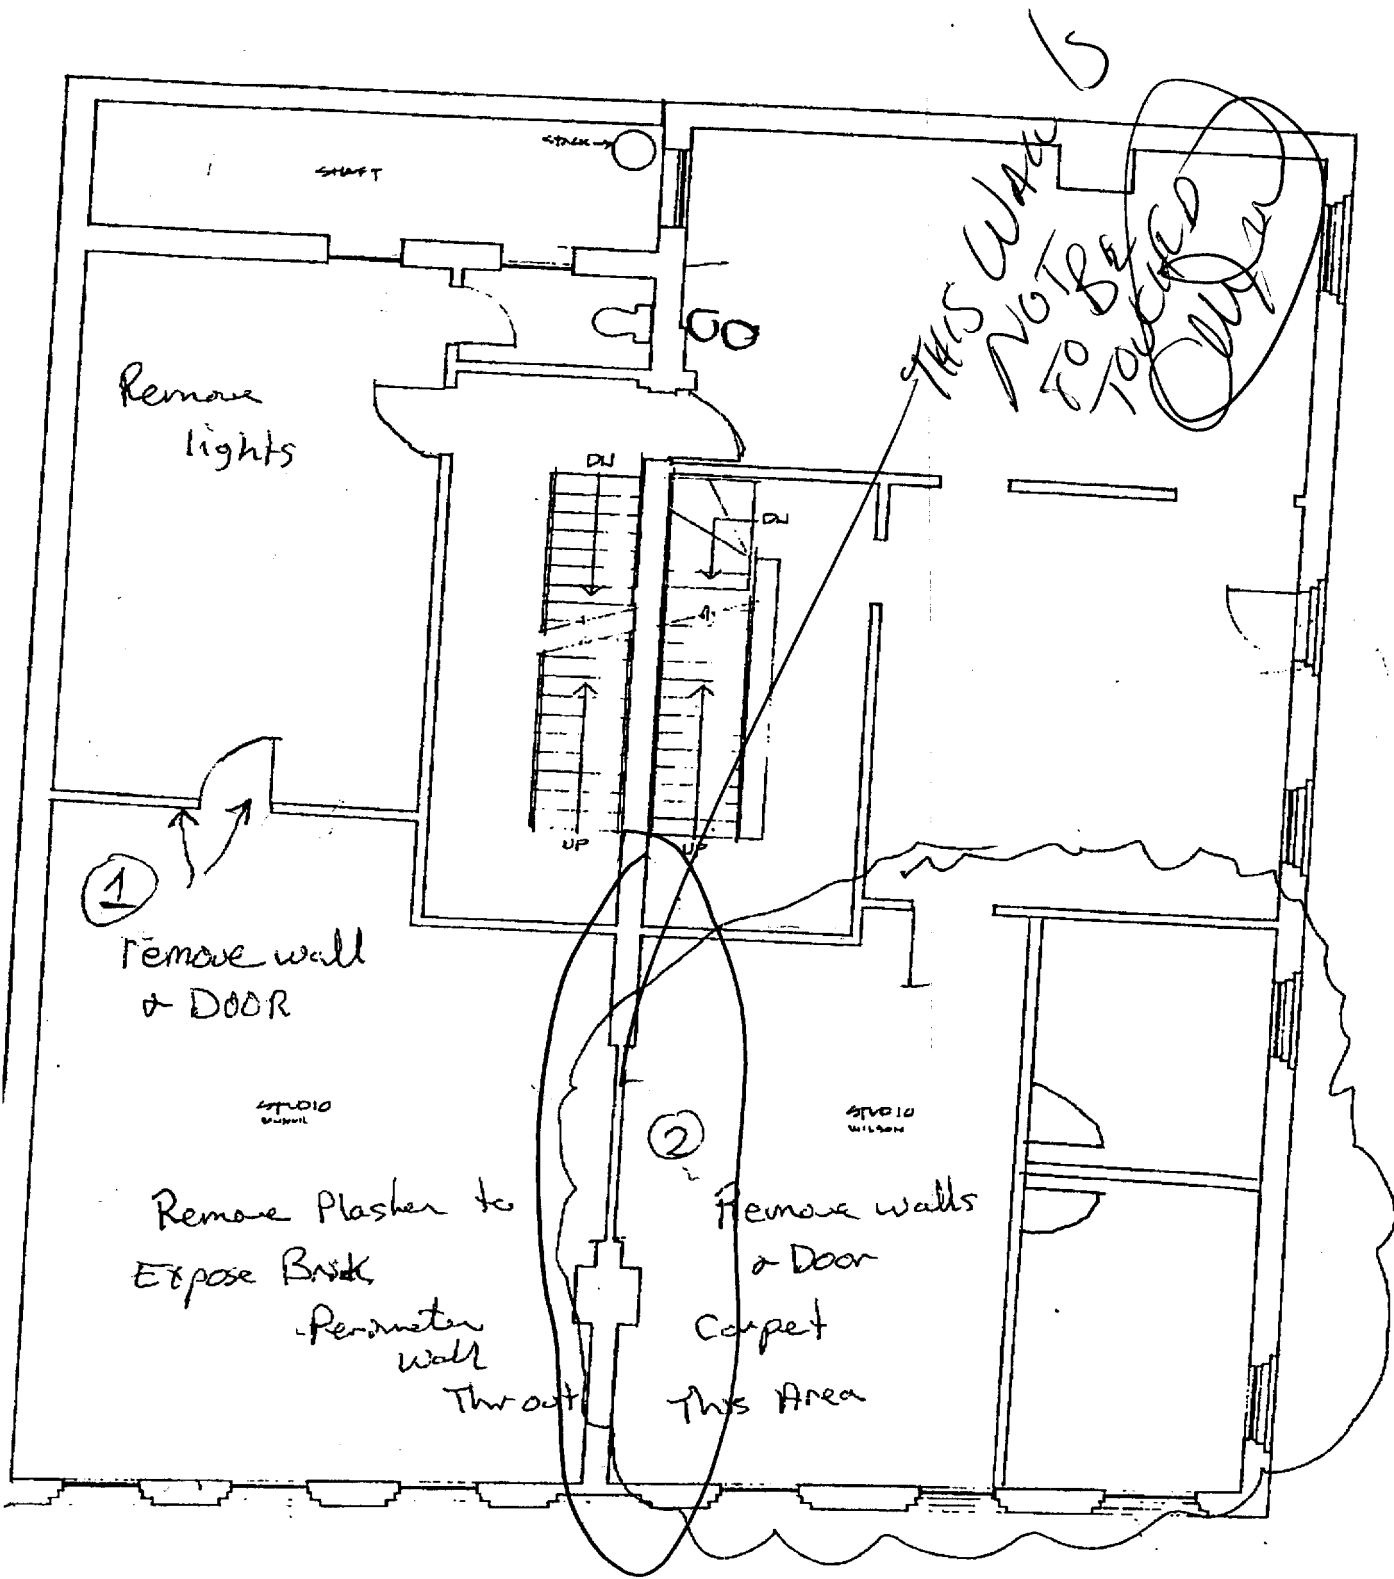 STACK
SHAFT
THIS WALL
NOT
TO BE
TOUCHED
Remove
lights
DN
DN
UP
UP
1
remove wall
& DOOR
STUDIO
STUDIO
WILSON
2
Remove Plasher to
Expose Brick
Perimeter
wall
Thr out
Remove walls
& Door
Carpet
This Area